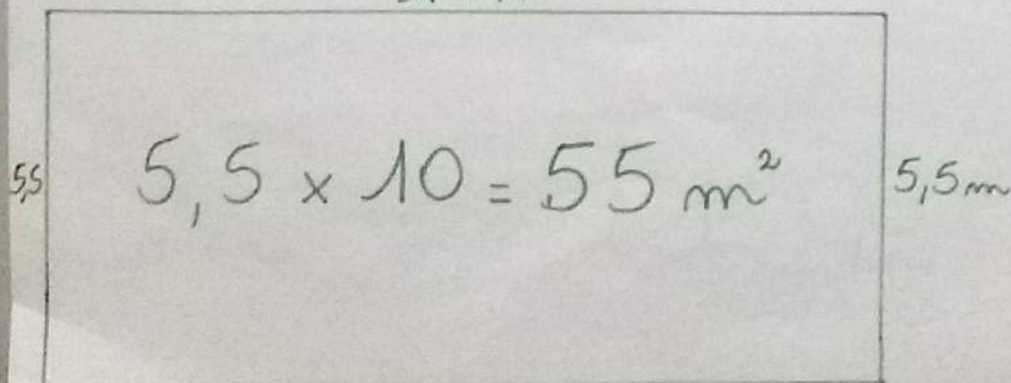 5,5 5,5 x 10 = 55 m² 5,5 m